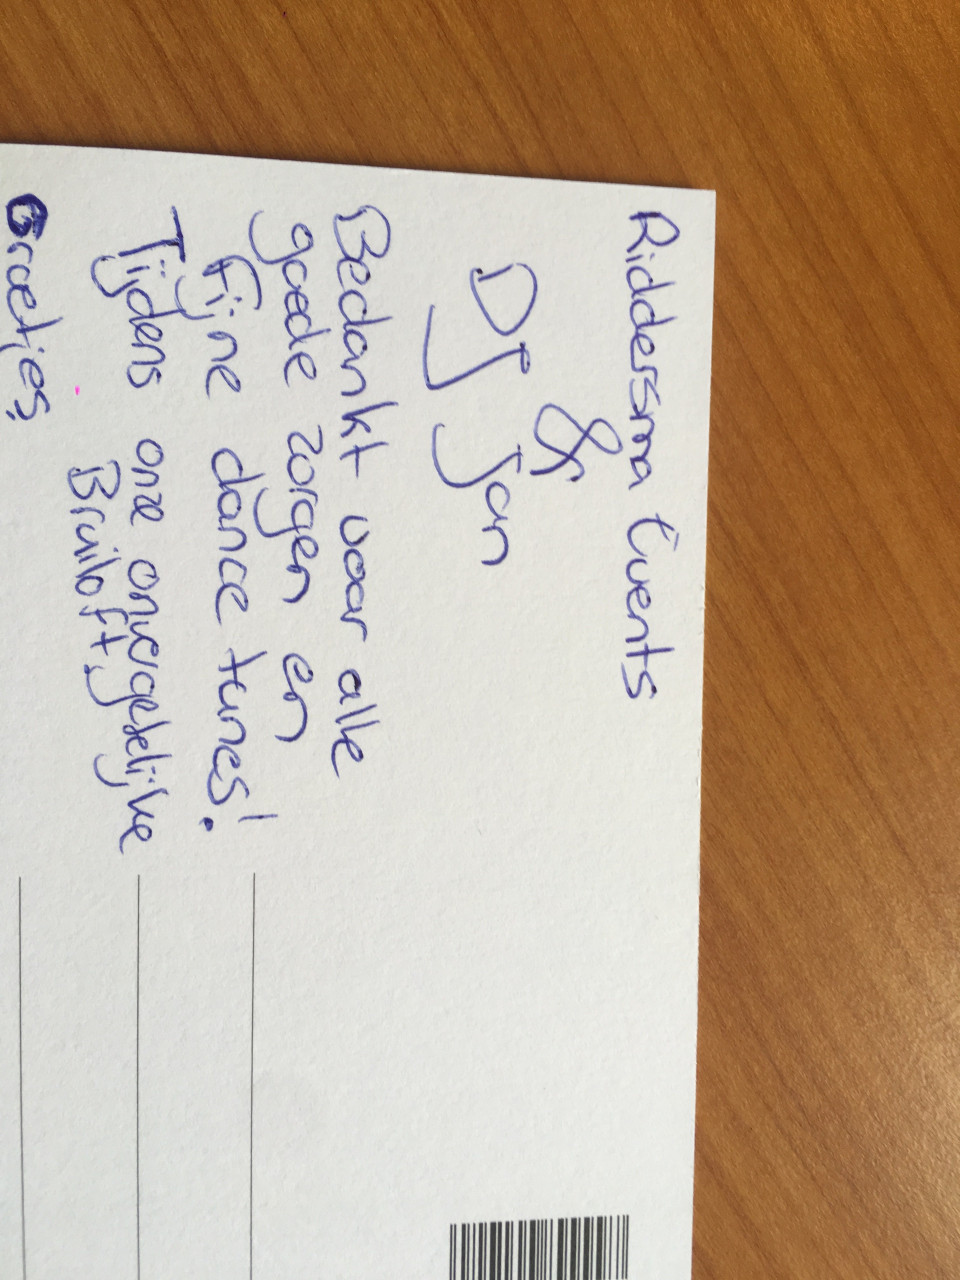 Riddersma Events
&
DJ Jan
Bedankt voor alle
goede zorgen en
fijne dance tunes!
Tijdens onze onvergetelijke
Bruiloft,
Groetjes,